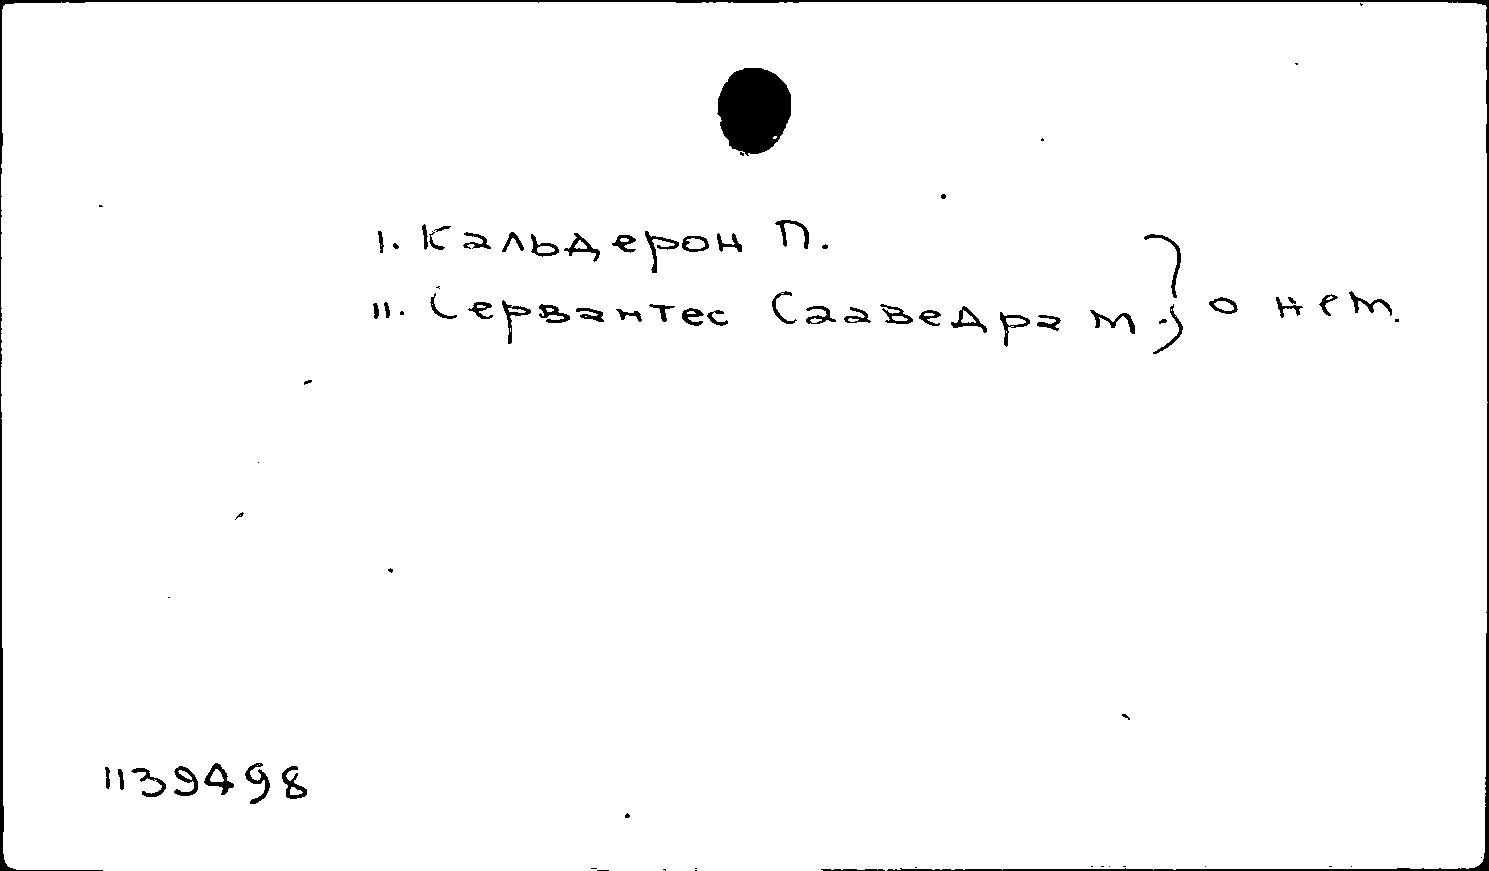 I. Кальдерон П.
II. Сервантес Сааведра М. } о нем.
1139498